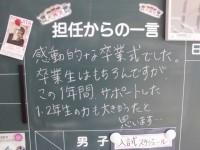 担任からの一言
感動的な卒業式でした。
卒業生はもちろんですが
この1年間サポートした
1.2年生の力も大きかったと
思います…
男子
入試スケジュール
日